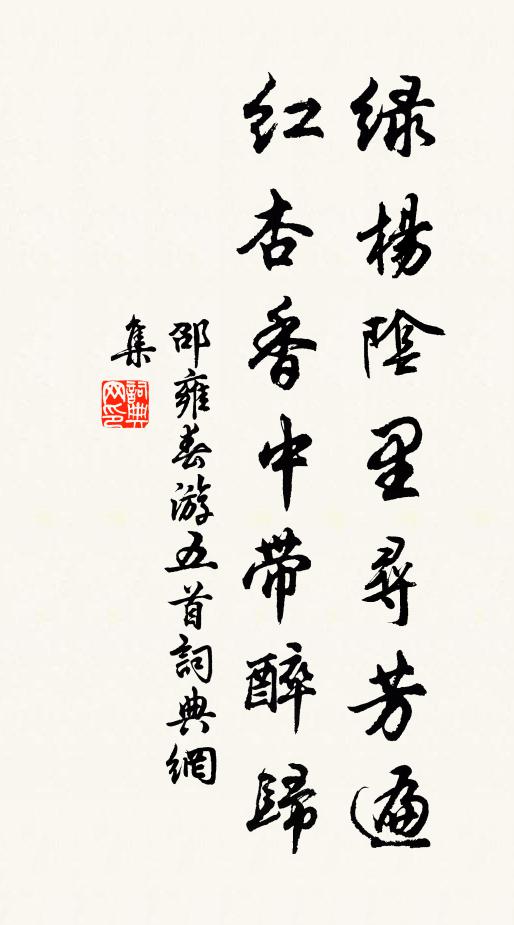 绿楊陰里尋芳遍
紅杏香中帶醉歸
邵雍春游五首詞典網
集
詞典網印